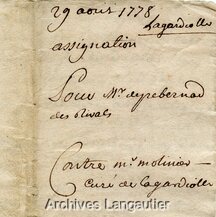 29 aout 1778
Lagardiolle
assignation
Pour Mr. deyrebernard
des olwals
Contre mr. molinier
curé de lagardiolle
Archives Langautier